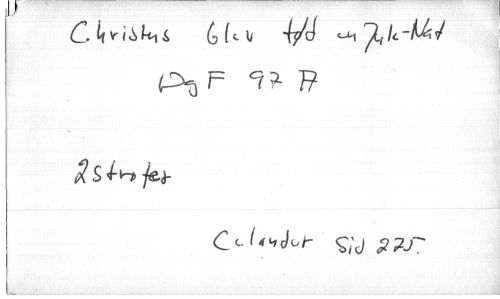 Christus blev fød en Jule-Nat
DgF 97 A
2 strofer
Celander Sid 225.